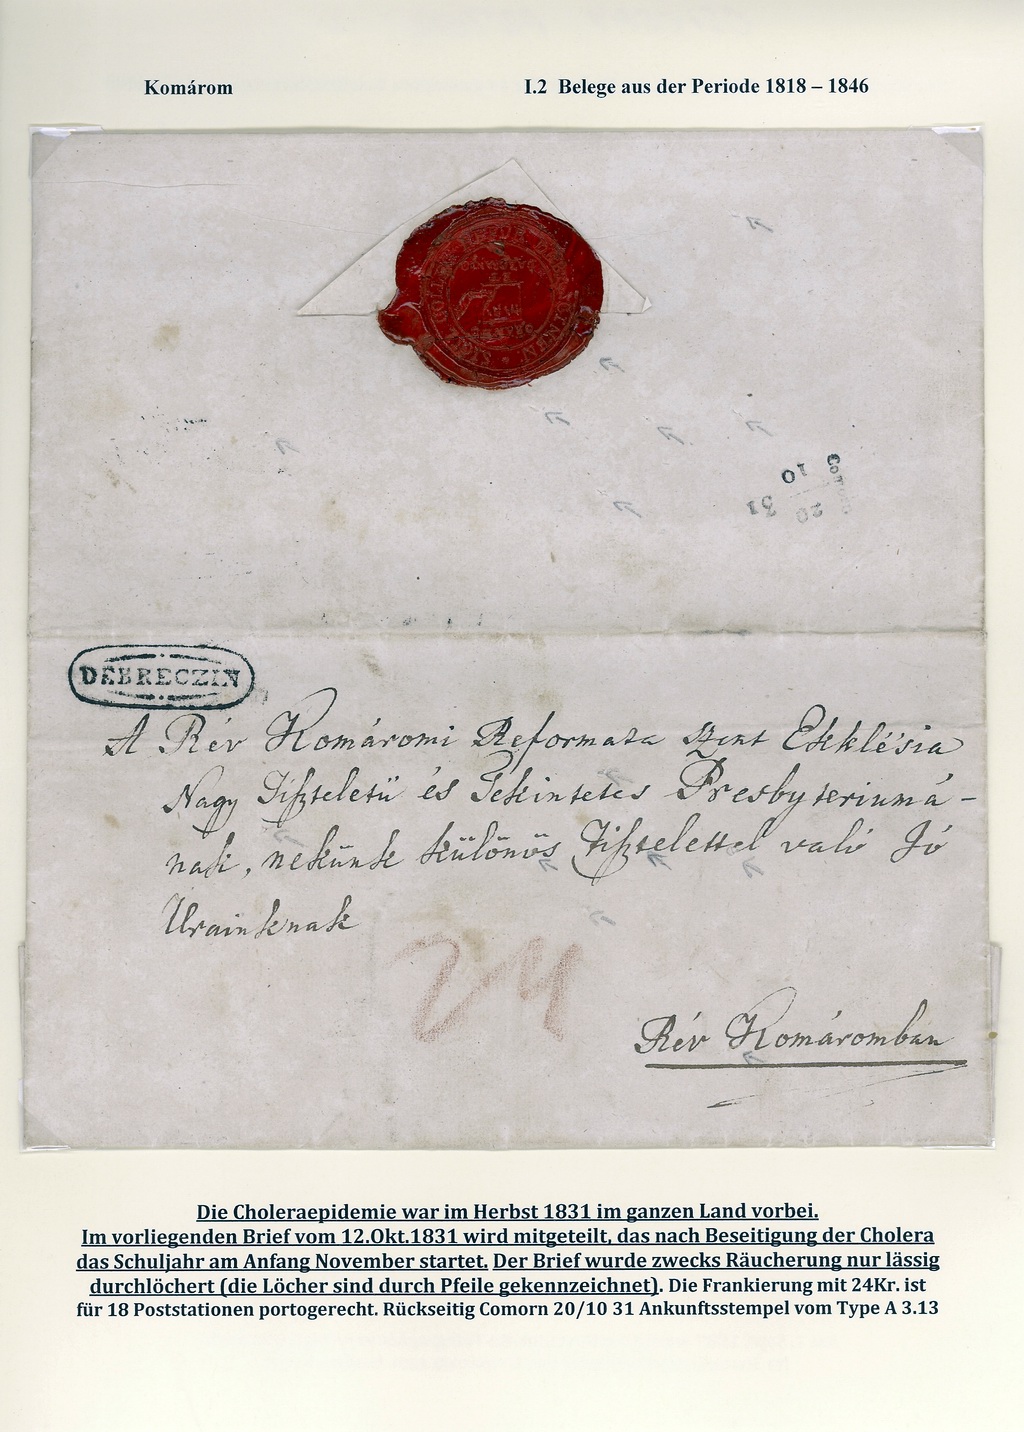 Komárom
I.2 Belege aus der Periode 1818 – 1846
SIGIL COLLEG
20 31
10
DEBRECZIN
A Rév Komáromi Reformata Szent Ekklésia
Nagy Tiszteletü és Tekintetes Presbyteriumá-
nak, nekünk különös Tisztelettel való Jó
Urainknak
24
Rév Komáromban
Die Choleraepidemie war im Herbst 1831 im ganzen Land vorbei.
Im vorliegenden Brief vom 12.Okt.1831 wird mitgeteilt, das nach Beseitigung der Cholera
das Schuljahr am Anfang November startet. Der Brief wurde zwecks Räucherung nur lässig
durchlöchert (die Löcher sind durch Pfeile gekennzeichnet). Die Frankierung mit 24Kr. ist
für 18 Poststationen portogerecht. Rückseitig Comorn 20/10 31 Ankunftsstempel vom Type A 3.13